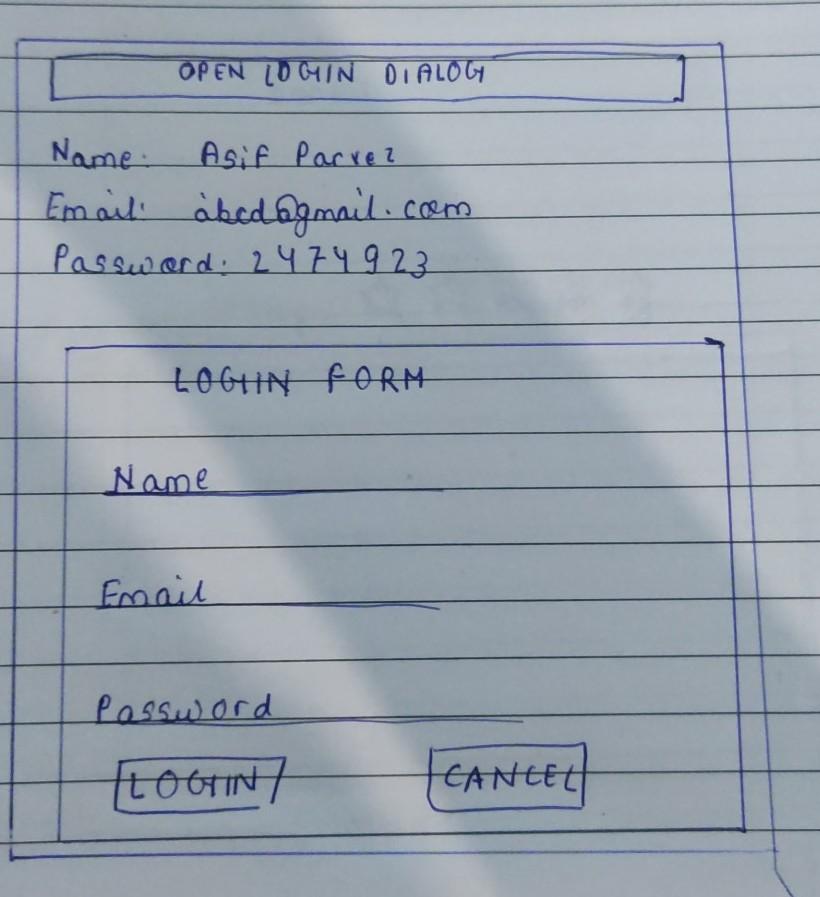 OPEN LOGIN DIALOG
Name: Asif Parvez
Email: abcd@gmail.com
Password: 2474923
LOGIN FORM
Name
Email
Password
LOGIN CANCEL